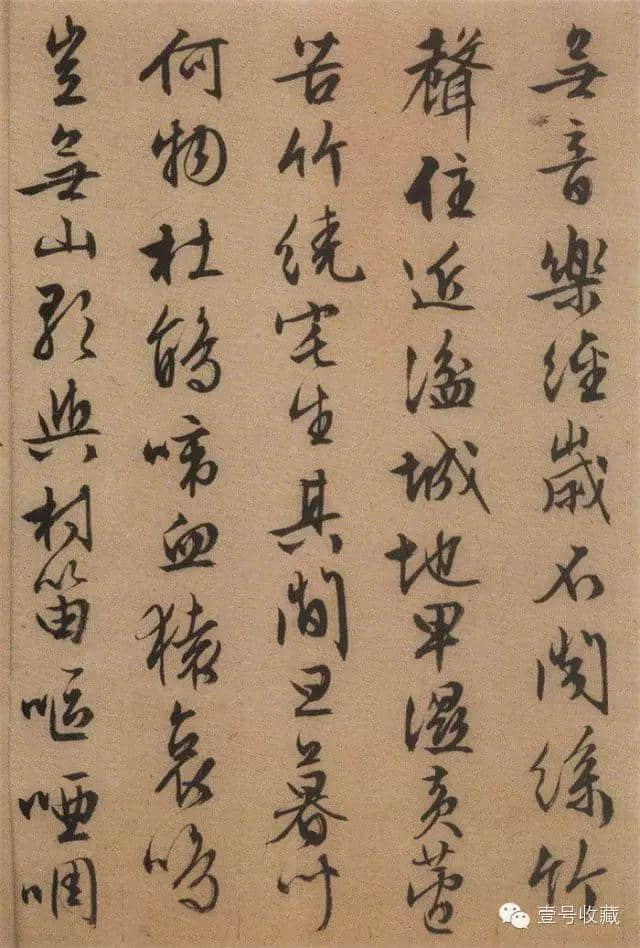 無音樂經歲不聞絲竹
聲住近湓城地卑濕黄蘆
苦竹繞宅生其間旦暮
何物杜鵑啼血猿哀鳴
豈無山歌與村笛嘔啞啁
壹号收藏